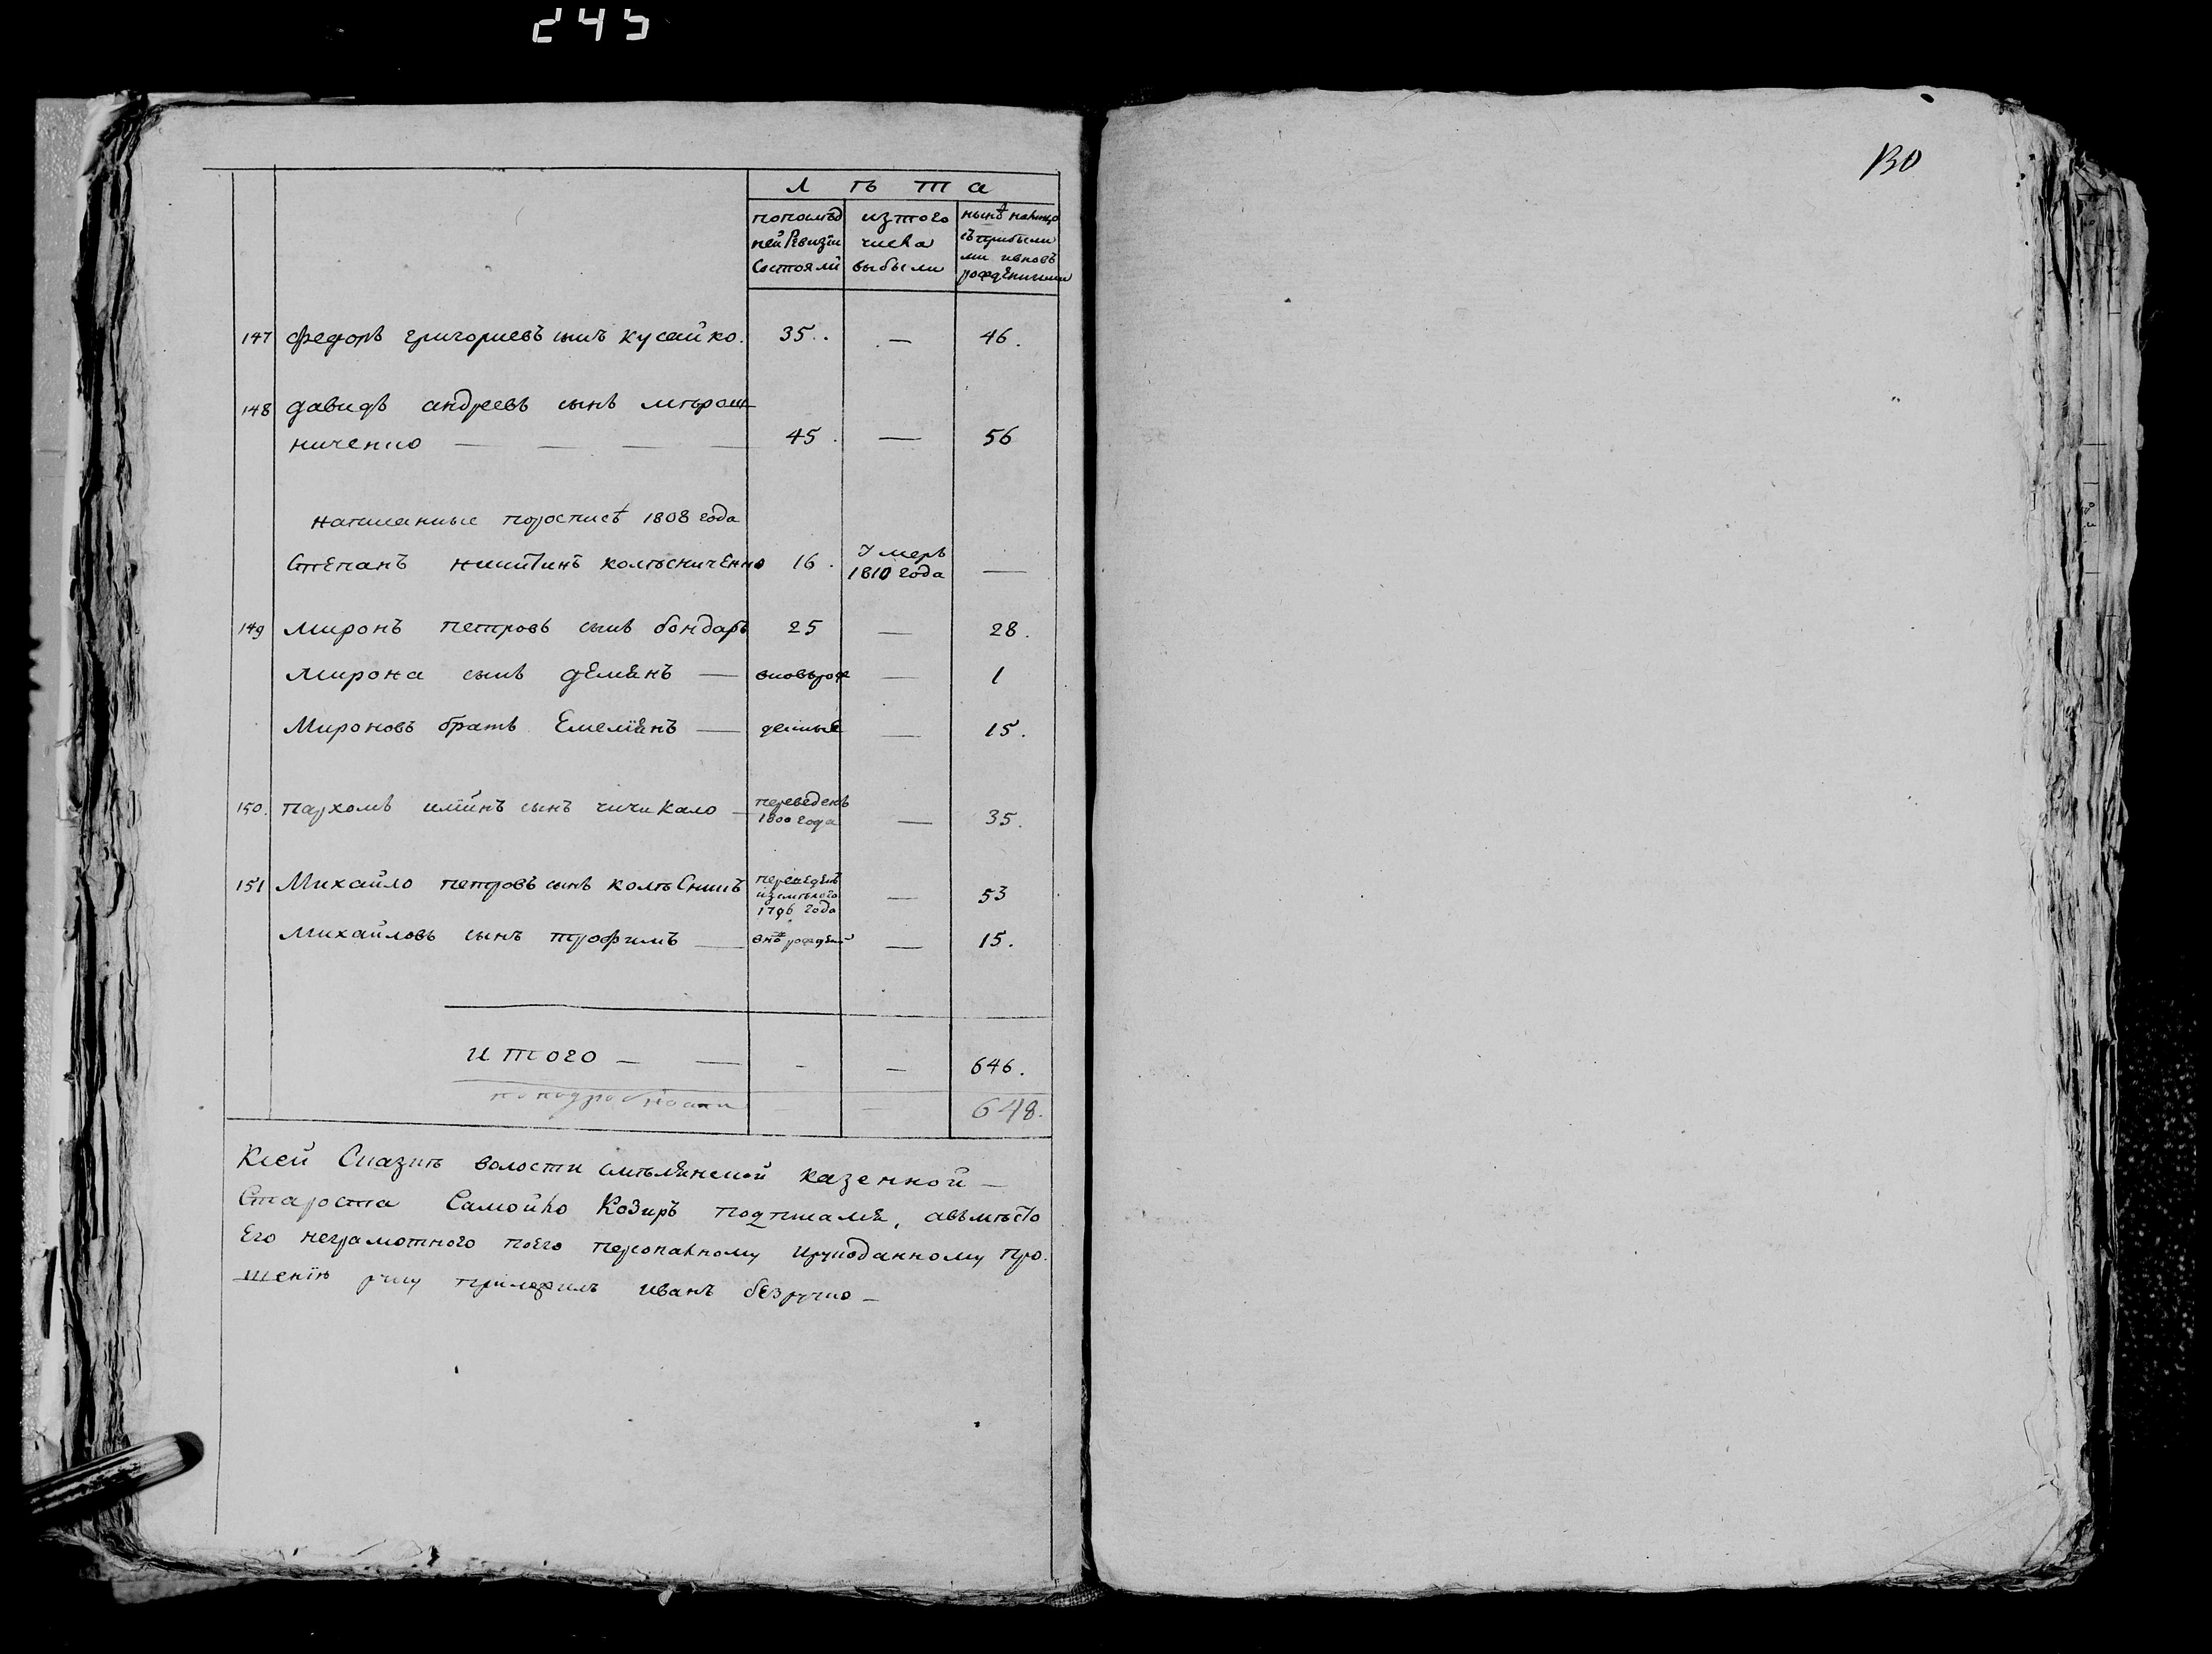 245
130
лѣта
попослѣд
ней Ревизïи
Состояли
изтого
числа
выбыли
нынѣ налицо
съ прибыли
ми ивновь
рожденными
147 Федоръ григориевъ сынъ кусайко. 35. — 46.
148 давидъ андреевъ сынъ мѣрош
ниченко — — — — 45. — 56
написанные поросписѣ 1808 года
Степанъ никитинъ колѣсниченко 16. Умеръ 1810 года —
149 миронъ петровъ сынъ бондарь 25 — 28.
мирона сынъ демянъ — вновьрож — 1
Мироновъ братъ Емелïянъ — — 15.
150. пархомъ сынъ чичикало — переведенъ 1800 года — 35.
151 Михайло петровъ сынъ колѣсникъ 1796 года — 53
михайловъ сынъ трофимъ — — 15.
итого — — - — 646.
поподробности — — 648.
Ксей Сказкѣ волости смѣлянской казенной —
Староста Самойло Козиръ подписался, авъмѣсто
Его неграмотного поего персоналному ирукоданному про.
шенïю руку приложилъ иванъ безручко —